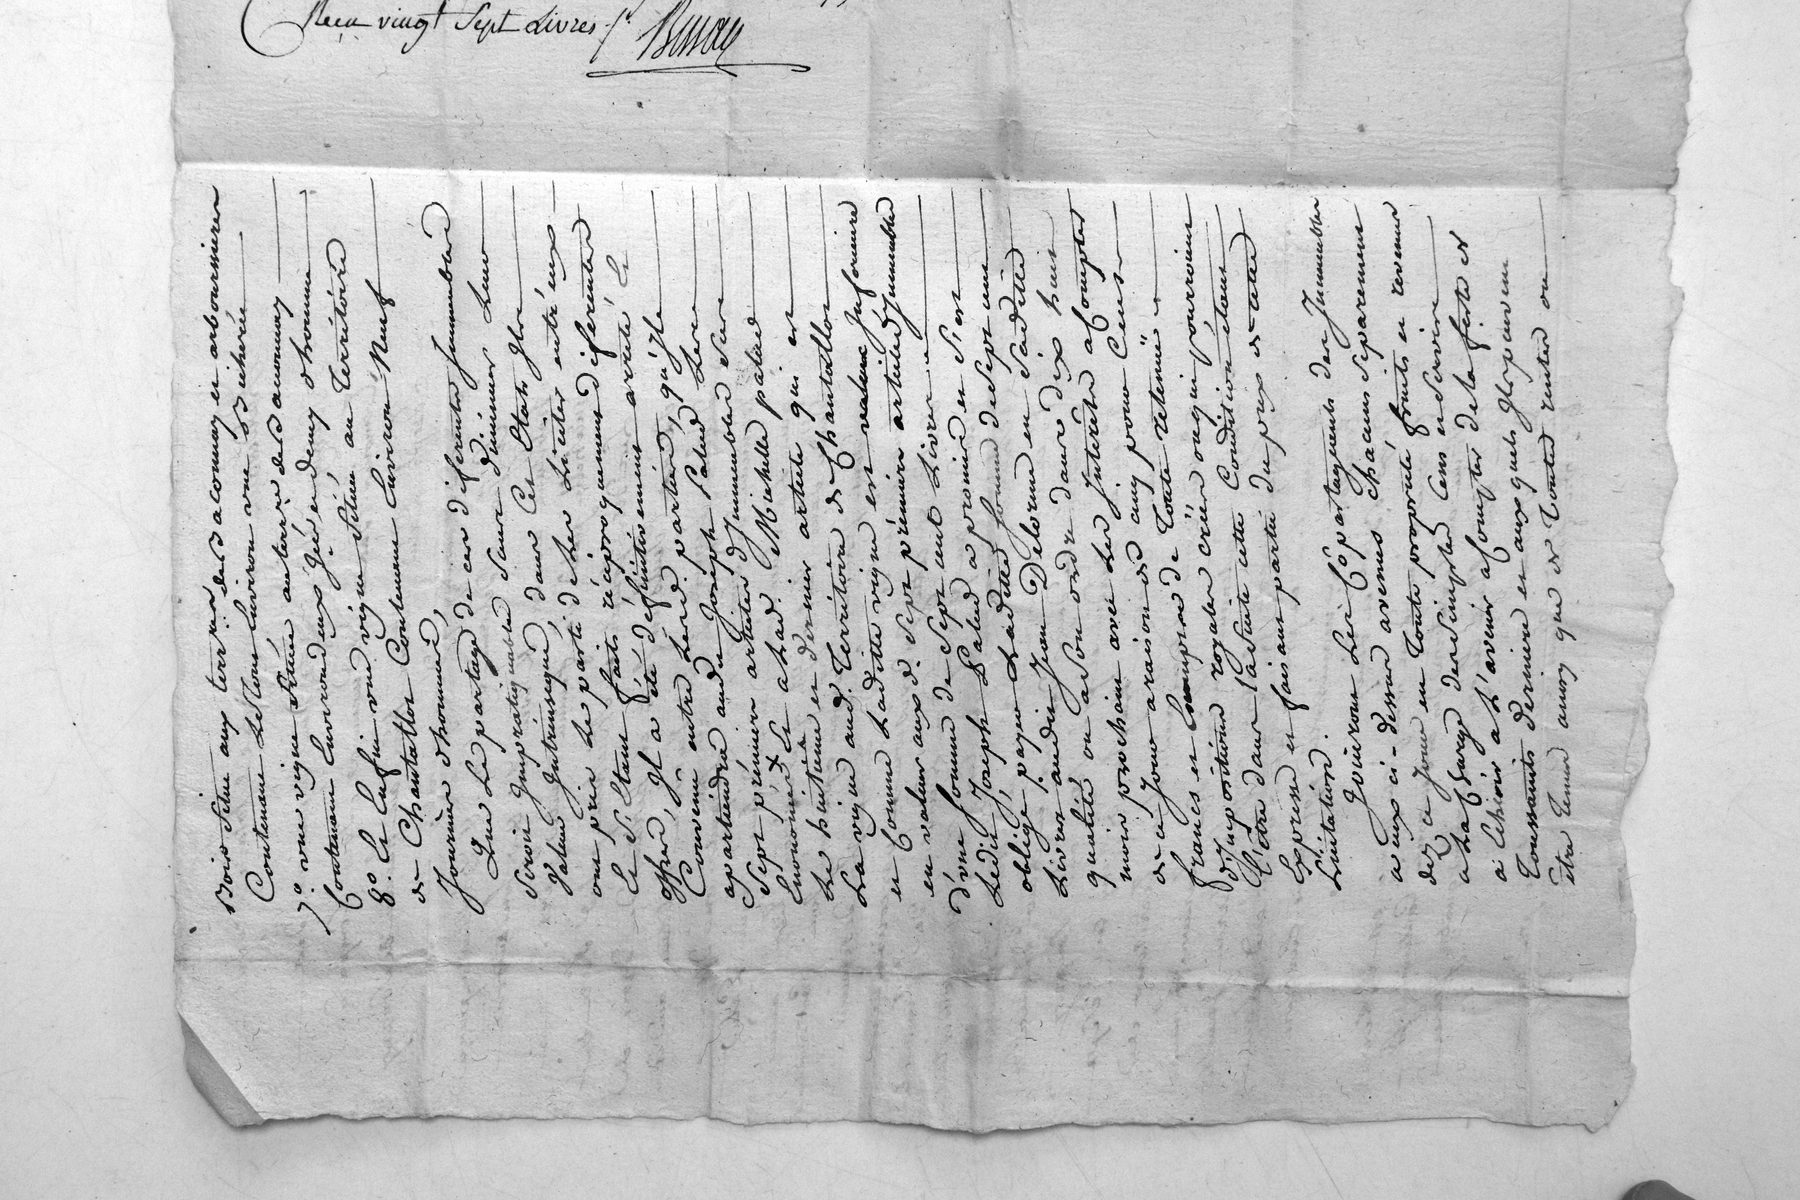 Reçu vingt Sept Livres
Bois situé aux terrjer desd acounay et arbourinier
Contenant Le tout Environ une
7.º une vigne située au terrier des acounay
Contenant Environ deux et demy d'homme
8.º et Enfin une vigne située au Territoire
de Chantallor Contenant Environ Neuf
Journées d'hommes,
Que Le partage de ces diferents Jmmeubles
seroit Jmpratiquable sans diminuer Leur
Valeur Jntrinseque, dans Cet Etat Jls
ont pris Le parti de Les Liciter entré eux
et S'Etant faits réciproquement diferentes
offres, Jl a été définitivement arrêté et
Convenu entre Lesd. parties, qu'Jl
apartiendra audit Joseph Palud Les
Sept prémiers articles d'Jmmeubles Sus
Enoncés & et a Lad. Michelle palud
Le huitieme et dernier article qui est
La vigne aud. Territoire de Chantallor
et Comme Laditte vigne est Jnferieure
en valeur aux d. Sept prémiers articles d'Jmmeubles
d'une somme de Sept cent Livres
Ledit Joseph Palud a promis et S'est
obligé payer Laditte somme de Sept cent
Livres audit Jean Delorme en Saditte
qualité ou a son ordre dans dix huit
mois prochain avec Les Jnterêts a Compter
de ce Jour a raison de cinq pour Cent
francs et Exempts de toute retenuë
d'Jmposition royales créées ou qui pourroient
L'être dans la Suite cette Condition étant
Expresse et faisant partie du prix de cette
Licitation.
Jouiront Les Copartageants des Jmmeubles
a eux ci-dessus avenus chacuns séparement
dez ce Jour en toute propriété fruits et revenus
a La Charge des simples Cens et servis
a échéoir a L'avenir a Compter de la feste de
Toussaints derniere et auxquels Jls peuvent
être tenus ainsy que de toutes rentes ou